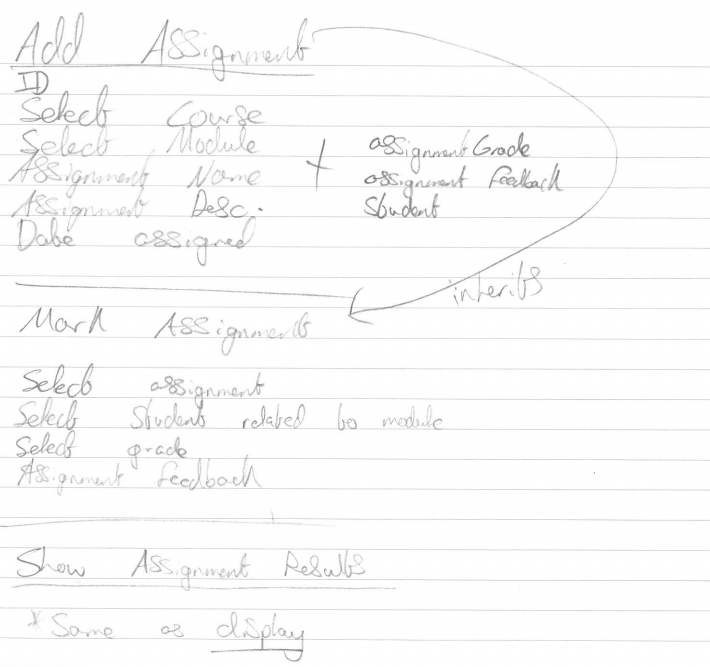 Add Assignment
ID
Select Course
Select Module
Assignment Name
Assignment Desc.
Date assigned
+ assignment Grade
assignment Feedback
Student
inherits
Mark Assignment
Select assignment
Select Student related to module
Select grade
Assignment Feedback
Show Assignment Results
*Same as display